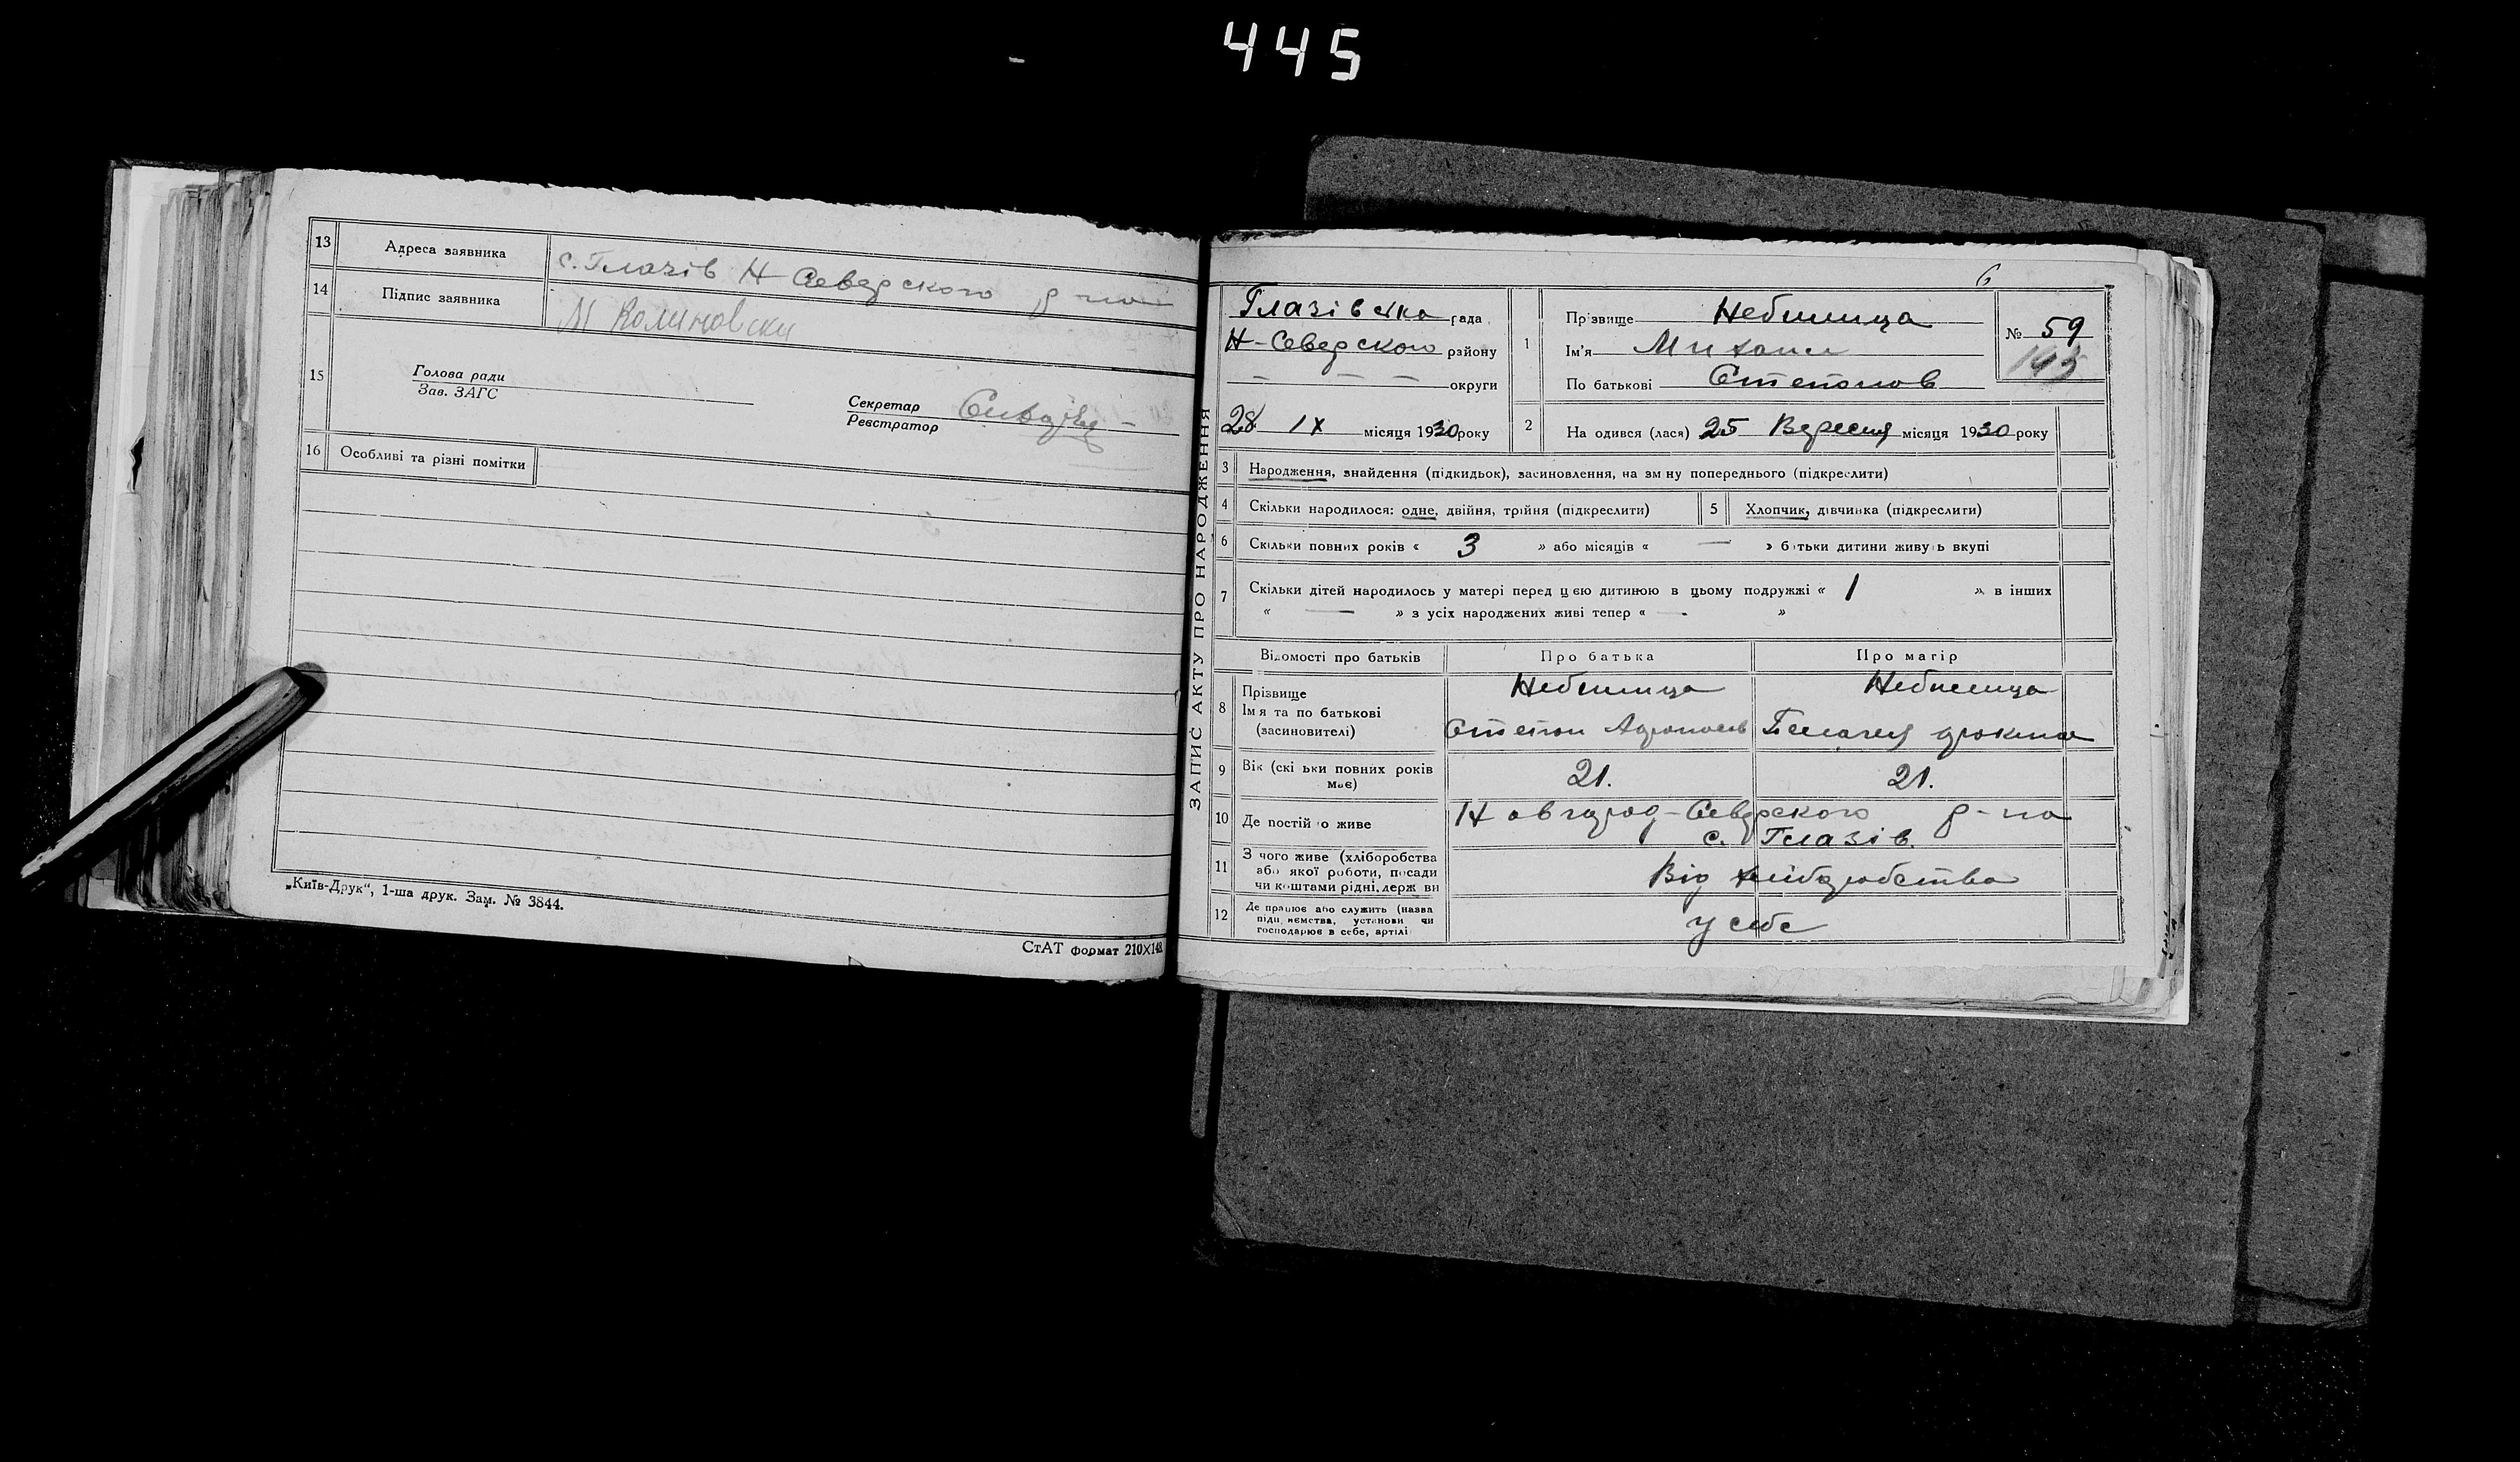 445
13 Адреса заявника с. Глазів Н Северского р-на
14 Підпис заявника М Калиновски
15 Голова ради
Зав. ЗАГС
Секретар
Реєстратор
16 Особливі та різні помітки
„Київ-Друк“, 1-ша друк. Зам. № 3844.
СтАТ формат 210×148
ЗАПИС АКТУ ПРО НАРОДЖЕННЯ
6
Глазівська рада
Н-Северского району
— — — округи
28 IX місяця 1930 року
1 Прізвище Небилица
Ім'я Михаил
По батькові Степанов
№ 59
145
2 На одився (лася) 25 Вересня місяця 1930 року
3 Народження, знайдення (підкидьок), засиновлення, на зм ну попереднього (підкреслити)
4 Скільки народилося: одне, двійня, трійня (підкреслити) 5 Хлопчик, дівчинка (підкреслити)
6 Скільки повних років « 3 » або місяців « — » б тьки дитини живу ь вкупі
7 Скільки дітей народилось у матері перед цією дитиною в цьому подружжі « 1 », в інших
« — » з усіх народжених живі тепер « — »
Відомості про батьків Про батька Про матір
8 Прізвище Небилица Небилица
Ім я та по батькові
(засиновителі) Степан Пелагея
9 Вік (скі ьки повних років
має) 21. 21.
10 Де постій о живе Новгород-Северского р-на
с. Глазів.
11 З чого живе (хліборобства
або якої роботи, посади
чи коштами рідні, держ ви Від хліборобства
12 Де працює або служить (назва
підп иємства, установи чи
господарює в себе, артілі у себе